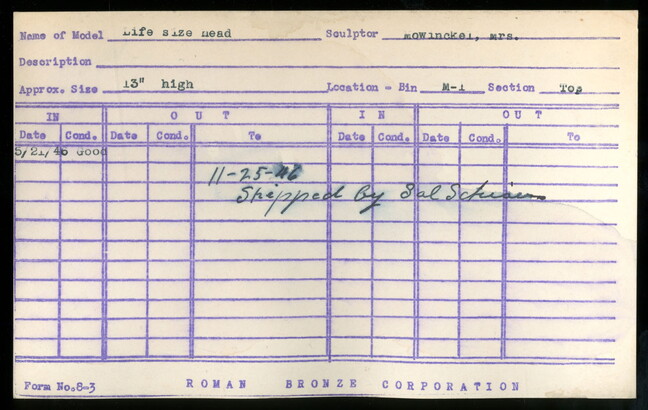 Name of Model Life size head Sculptor Mowinckel, Mrs.
Description
Approx. Size 13" high Location - Bin M-1 Section Top
IN OUT IN OUT
Date Cond. Date Cond. To Date Cond. Date Cond. To
5/21/46 Good
11-25-46
Shipped by Sal
Form No. 8-3 ROMAN BRONZE CORPORATION